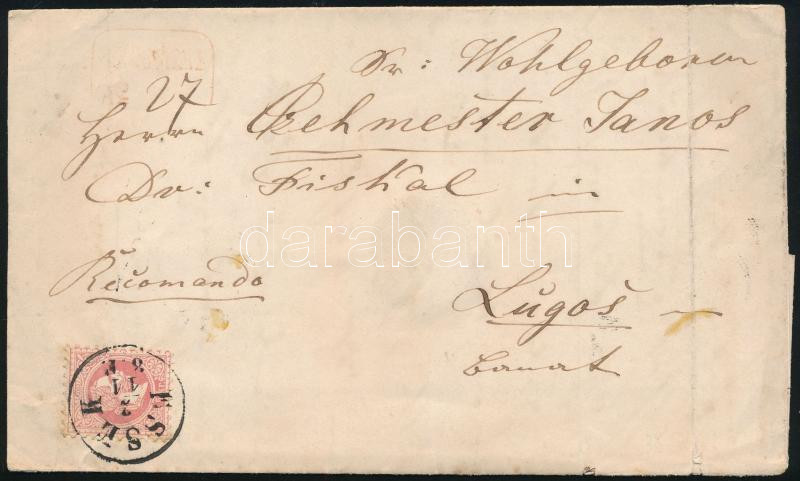 Sr: Wohlgeboren
27
Herrn Czehmester Janos
Dr: Fiskal in
darabanth
Recomando
Lugos
banat
ESSEK